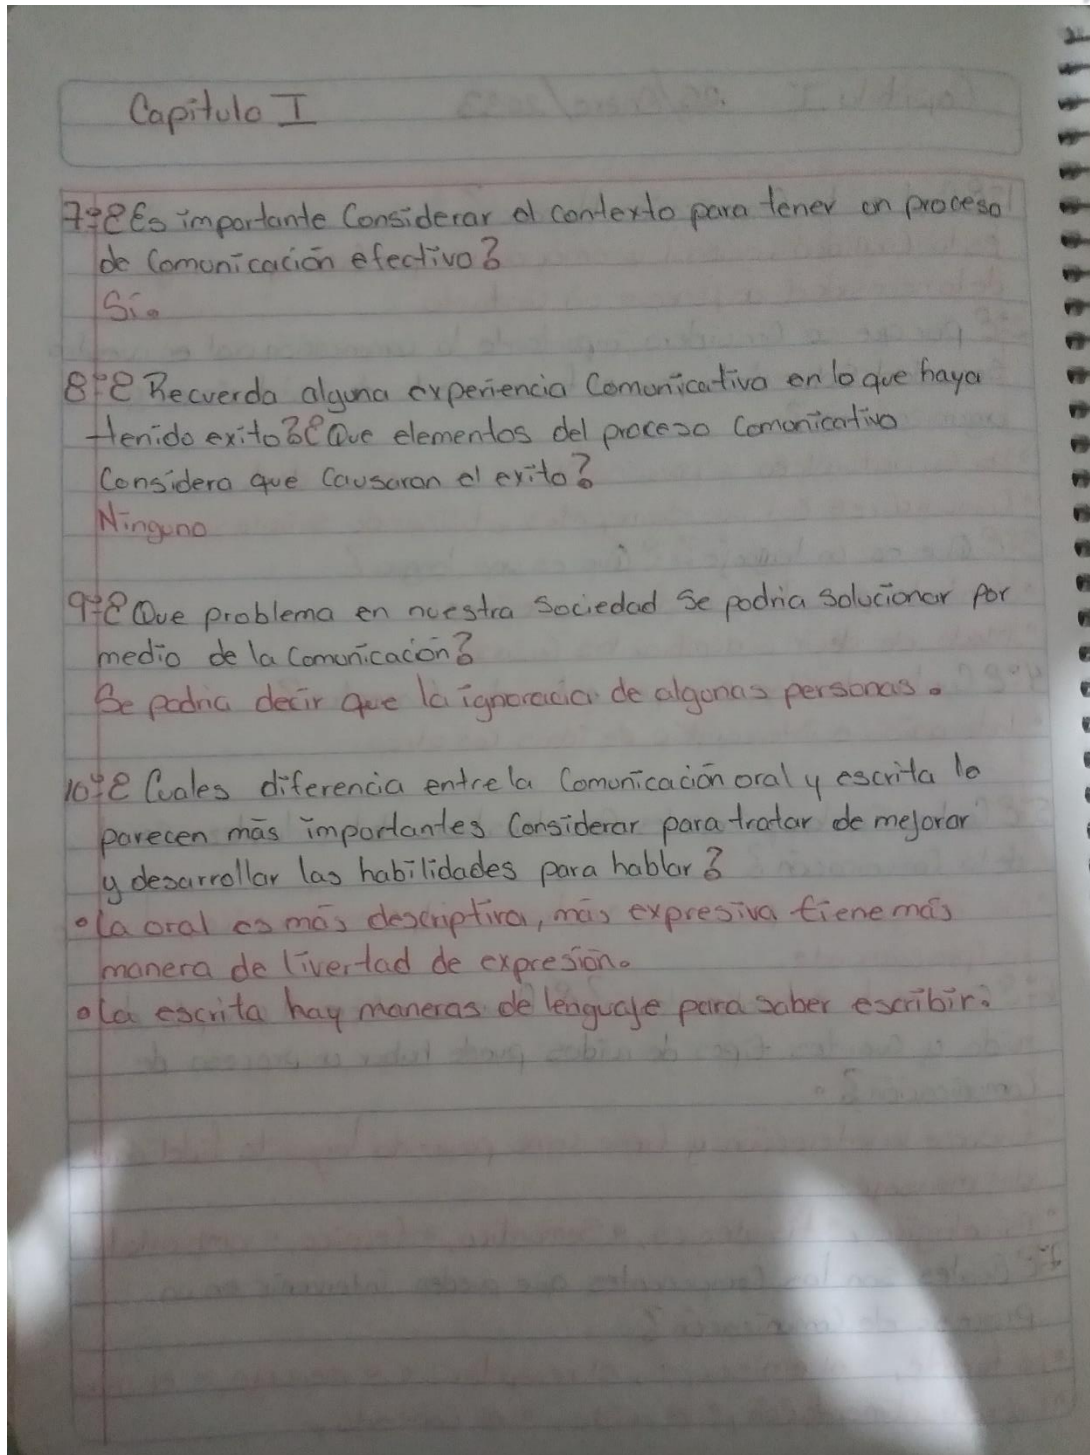 Capitulo I
7º ¿Es importante Considerar el contexto para tener un proceso
de Comunicación efectivo?
Si.
8º ¿Recuerda alguna experiencia Comunicativa en lo que haya
tenido exito? ¿Que elementos del proceso Comunicativo
Considera que Causaron el exito?
Ninguno
9º ¿Que problema en nuestra Sociedad Se podria solucionar por
medio de la Comunicación?
Se podria decir que la ignoracia de algunas personas.
10º ¿Cuales diferencia entre la Comunicación oral y escrita le
parecen más importantes Considerar para tratar de mejorar
y desarrollar las habilidades para hablar?
• la oral es más descriptiva, más expresiva tiene más
manera de livertad de expresión.
• la escrita hay maneras de lenguaje para saber escribir.